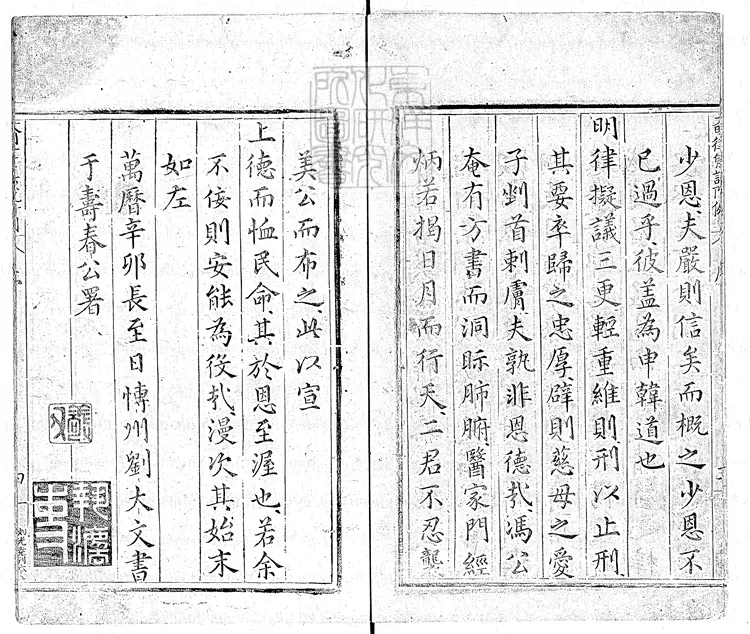 少恩夫嚴則信矣而概之少恩不
已過乎彼盖為申韓道也
明律擬議三更輕重維則刑以止刑
其要卒歸之忠厚辟則慈母之愛
子剃首剌膚夫孰非恩德㢤馮公
奄有方書而洞眎肺腑醫家門經
炳若揭日月而行天二君不忍龔
美公而布之此以宣
上德而恤民命其於恩至渥也若余
不佞則安能為役㢤漫次其始末
如左
萬曆辛卯長至日博州劉大文書
于壽春公署